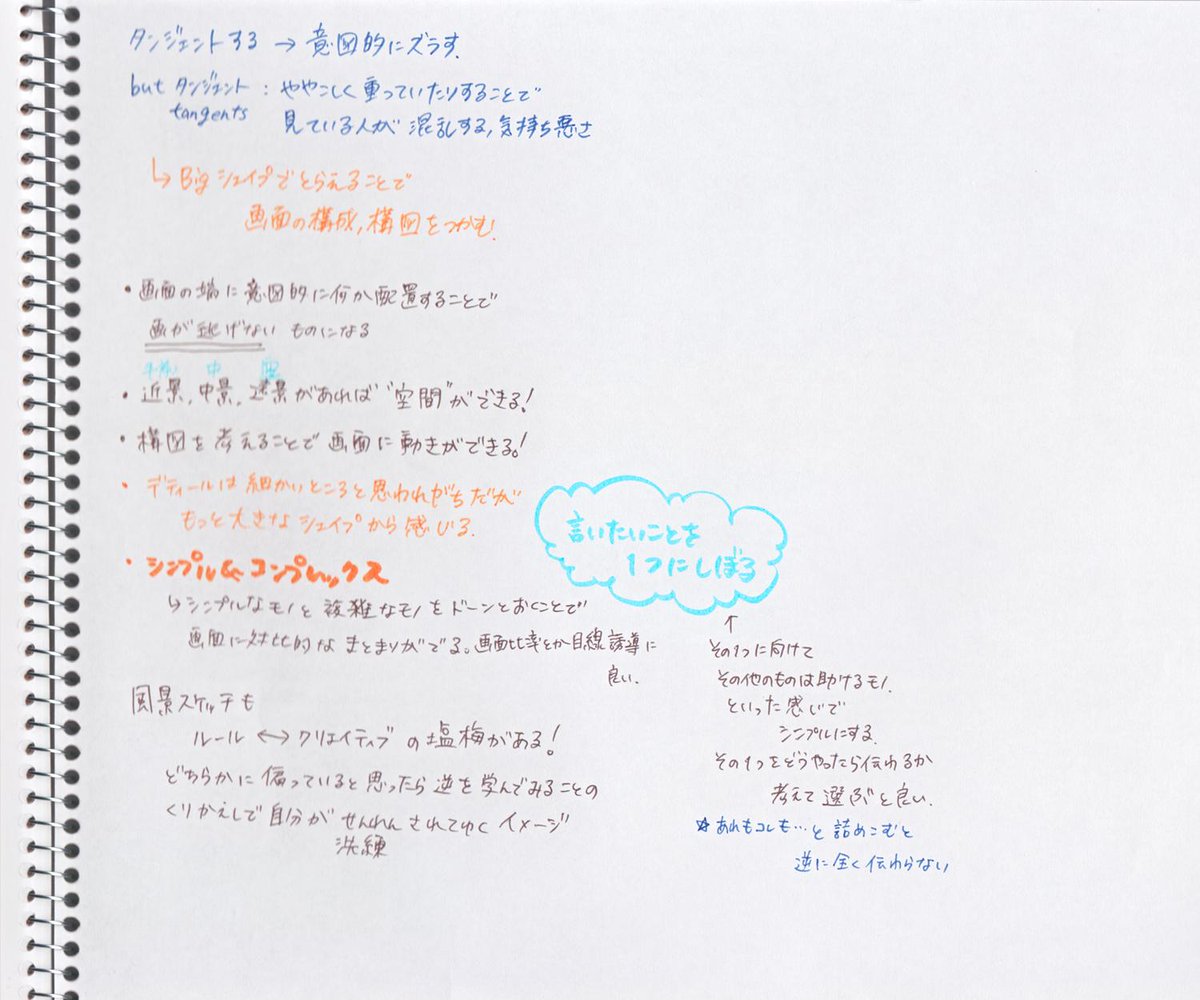 タンジェントする → 意図的にズラす.
but タンジェント : ややこしく重っていたりすることで
tangents 見ている人が混乱する,気持ち悪さ
↳ Big シェイプでとらえることで
画面の構成,構図をつかむ.
・画面の端に意図的に何か配置することで
画が逃げない ものになる
中
・近景,中景,遠景があれば"空間"ができる!
・構図を考えることで画面に動きができる!
・デティールは細かいところと思われがちだが
もっと大きなシェイプから感じる.
・シンプル&コンプレックス
↳ シンプルなモノと複雑なモノをドーンとおくことで
画面に対比的なまとまりがでる。画面比率とか目線誘導に
良い.
風景スケッチも
ルール ↔ クリエイティブの塩梅がある!
どちらかに偏っていると思ったら逆を学んでみることの
くりかえしで自分がせんれんされてゆくイメージ
洗練
言いたいことを
1つにしぼる
↑
その1つに向けて
その他のものは助けるモノ.
といった感じで
シンプルにする.
その1つをどうやったら伝わるか
考えて選ぶと良い.
☆あれもコレも…と詰めこむと
逆に全く伝わらない